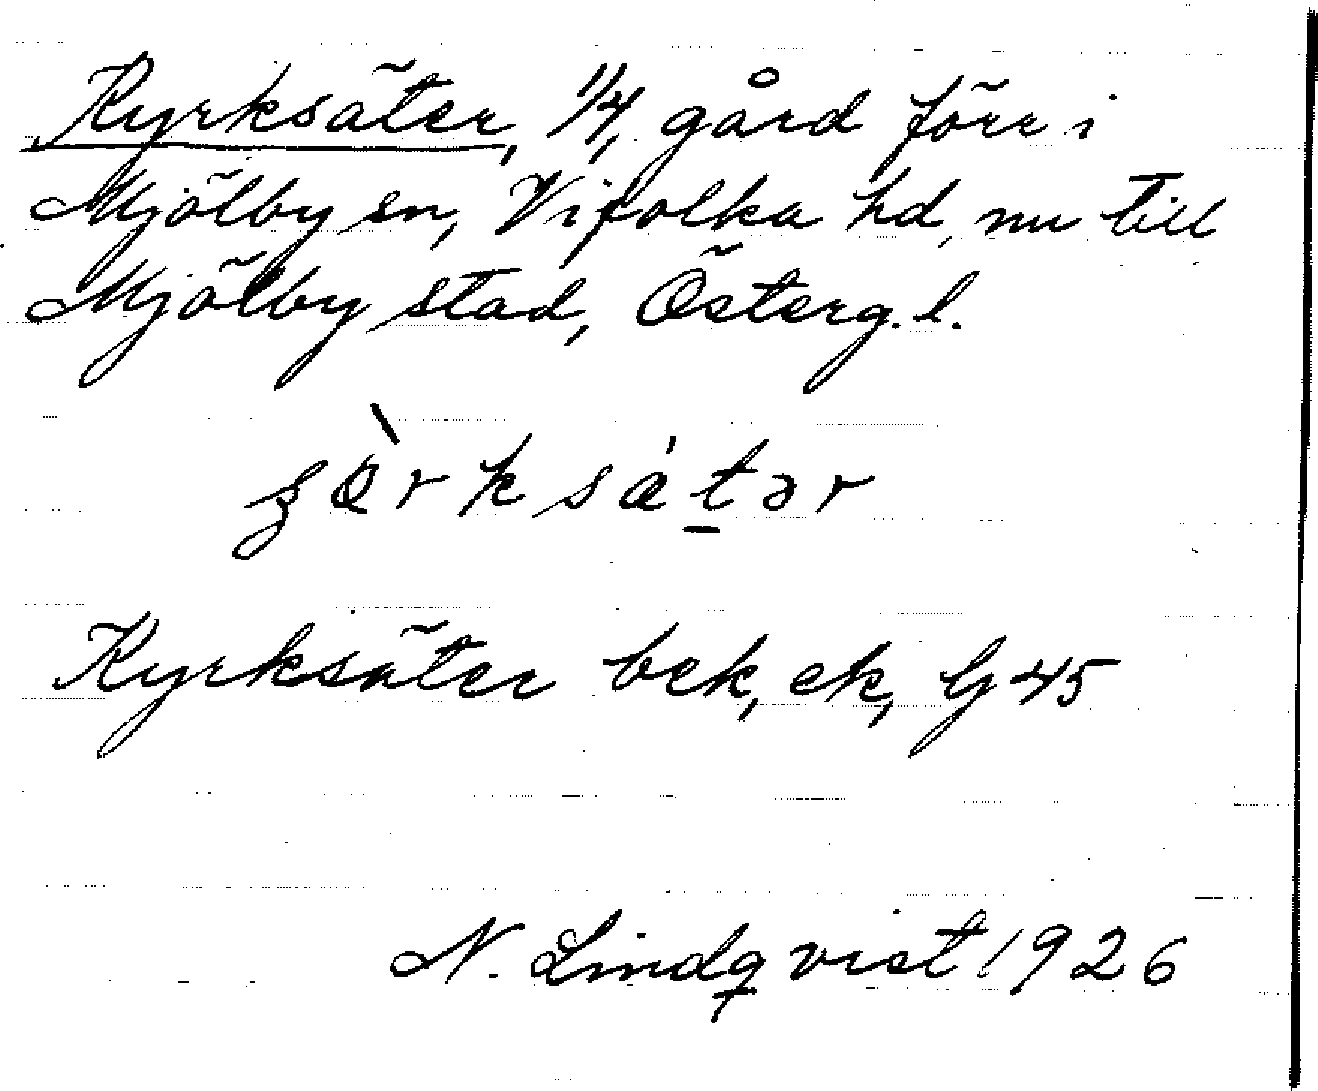 Kyrksäter, 1/4, gård förr i
Mjölby sn, Vifolka hd, nu till
Mjölby stad, Österg. l.
Kyrksäter bek, ek, Gj 45
N. Lindqvist 1926